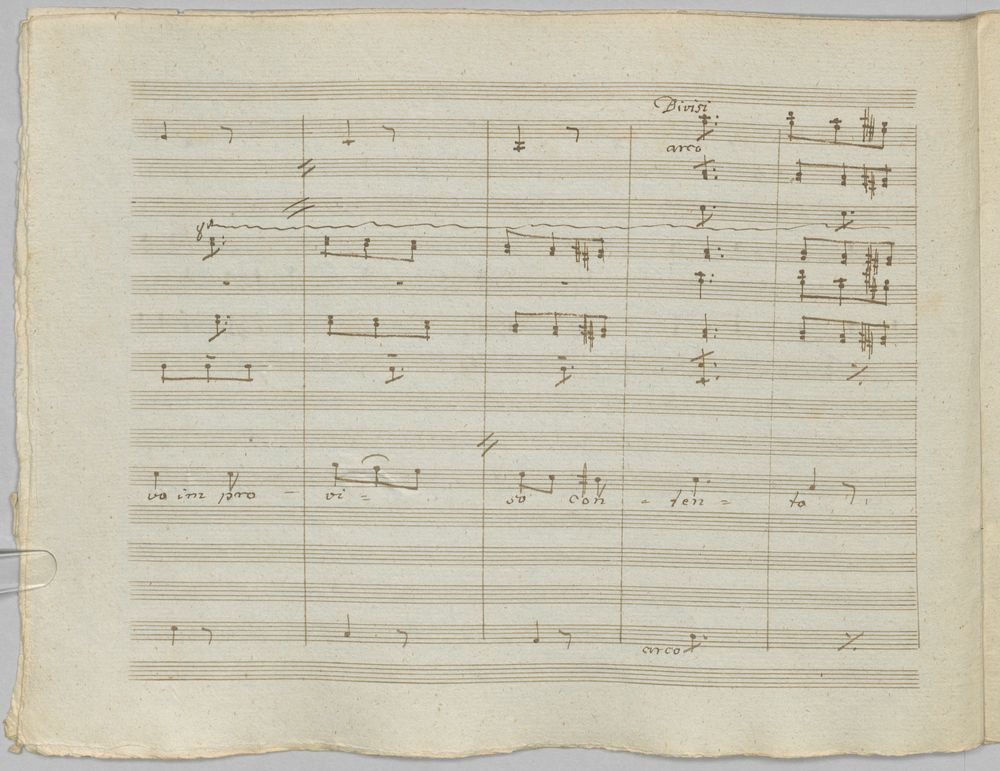 Divisi
arco
8va
vo im pro - vi = so con - ten = to
arco